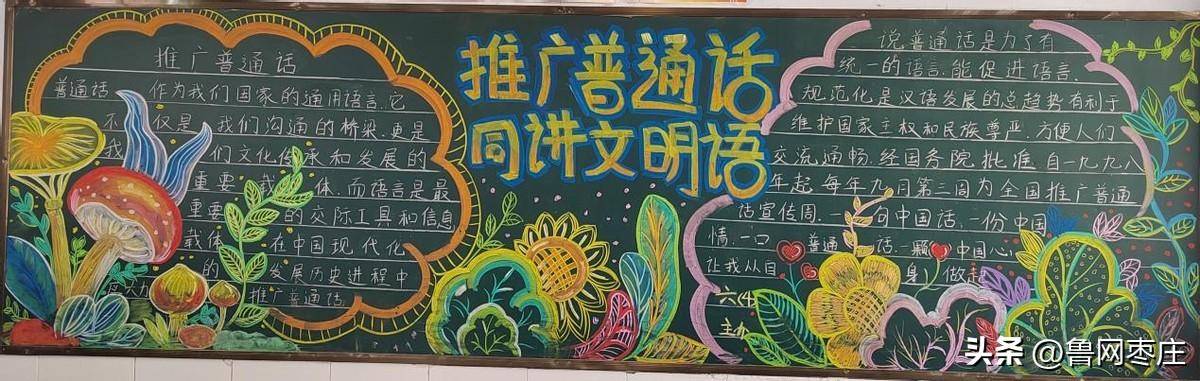 推广普通话
普通话 作为我们国家的通用语言,它
不仅是我们沟通的桥梁,更是
我们文化传承和发展的
重要载体,而语言是最
重要的交际工具和信息
载体 在中国现代化
的发展历史进程中
推广普通话
推广普通话
同讲文明语
说普通话是为了有
统一的语言,能促进语言
规范化是汉语发展的总趋势有利于
维护国家主权和民族尊严,方便人们
交流通畅,经国务院批准自一九九八
年起,每年九月第三周为全国推广普通
话宣传周,一句中国话,一份中国
情,一口普通话,一颗中国心,
让我从自身做起
六(4
主办
头条@鲁网枣庄